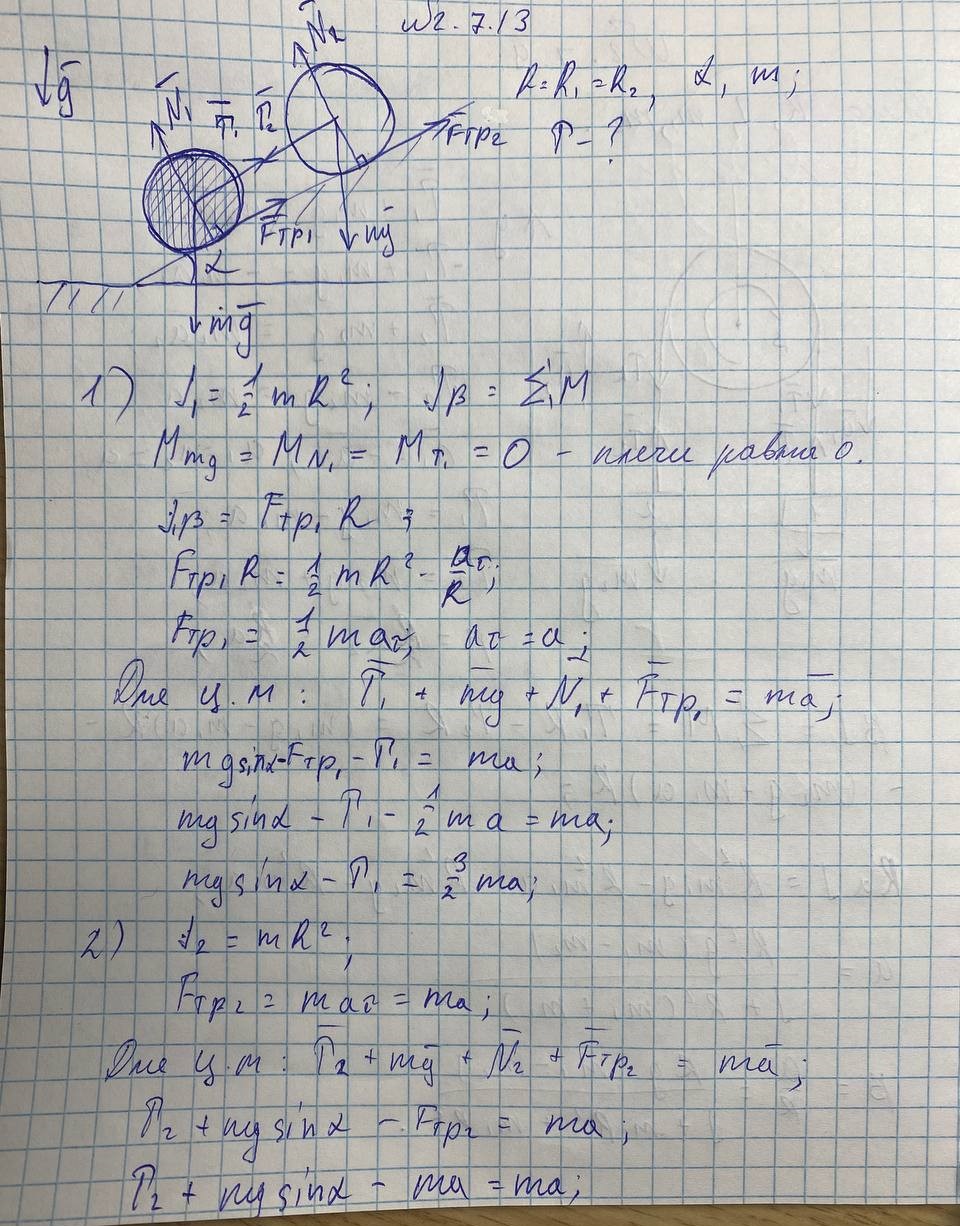 №2.7.13
g
N₁ T₁ T₂ N₂
R=R₁=R₂, α, m;
Fтр₂ T-?
Fтр₁ mg
α
mg
1) J₁ = 1/2 mR²; Jβ = ΣM
Mmg = MN₁ = MT₁ = 0 - плечи равны 0.
J₁β = Fтр₁ R ;
Fтр₁ R = 1/2 mR² · aτ/R;
Fтр₁ = 1/2 maτ; aτ = a;
Для ц.м: T₁ + mg + N₁ + Fтр₁ = ma;
mg sinα - Fтр₁ - T₁ = ma;
mg sinα - T₁ - 1/2 ma = ma;
mg sinα - T₁ = 3/2 ma;
2) J₂ = mR²;
Fтр₂ = maτ = ma;
Для ц.м: T₂ + mg + N₂ + Fтр₂ = ma;
T₂ + mg sinα - Fтр₂ = ma;
T₂ + mg sinα - ma = ma;